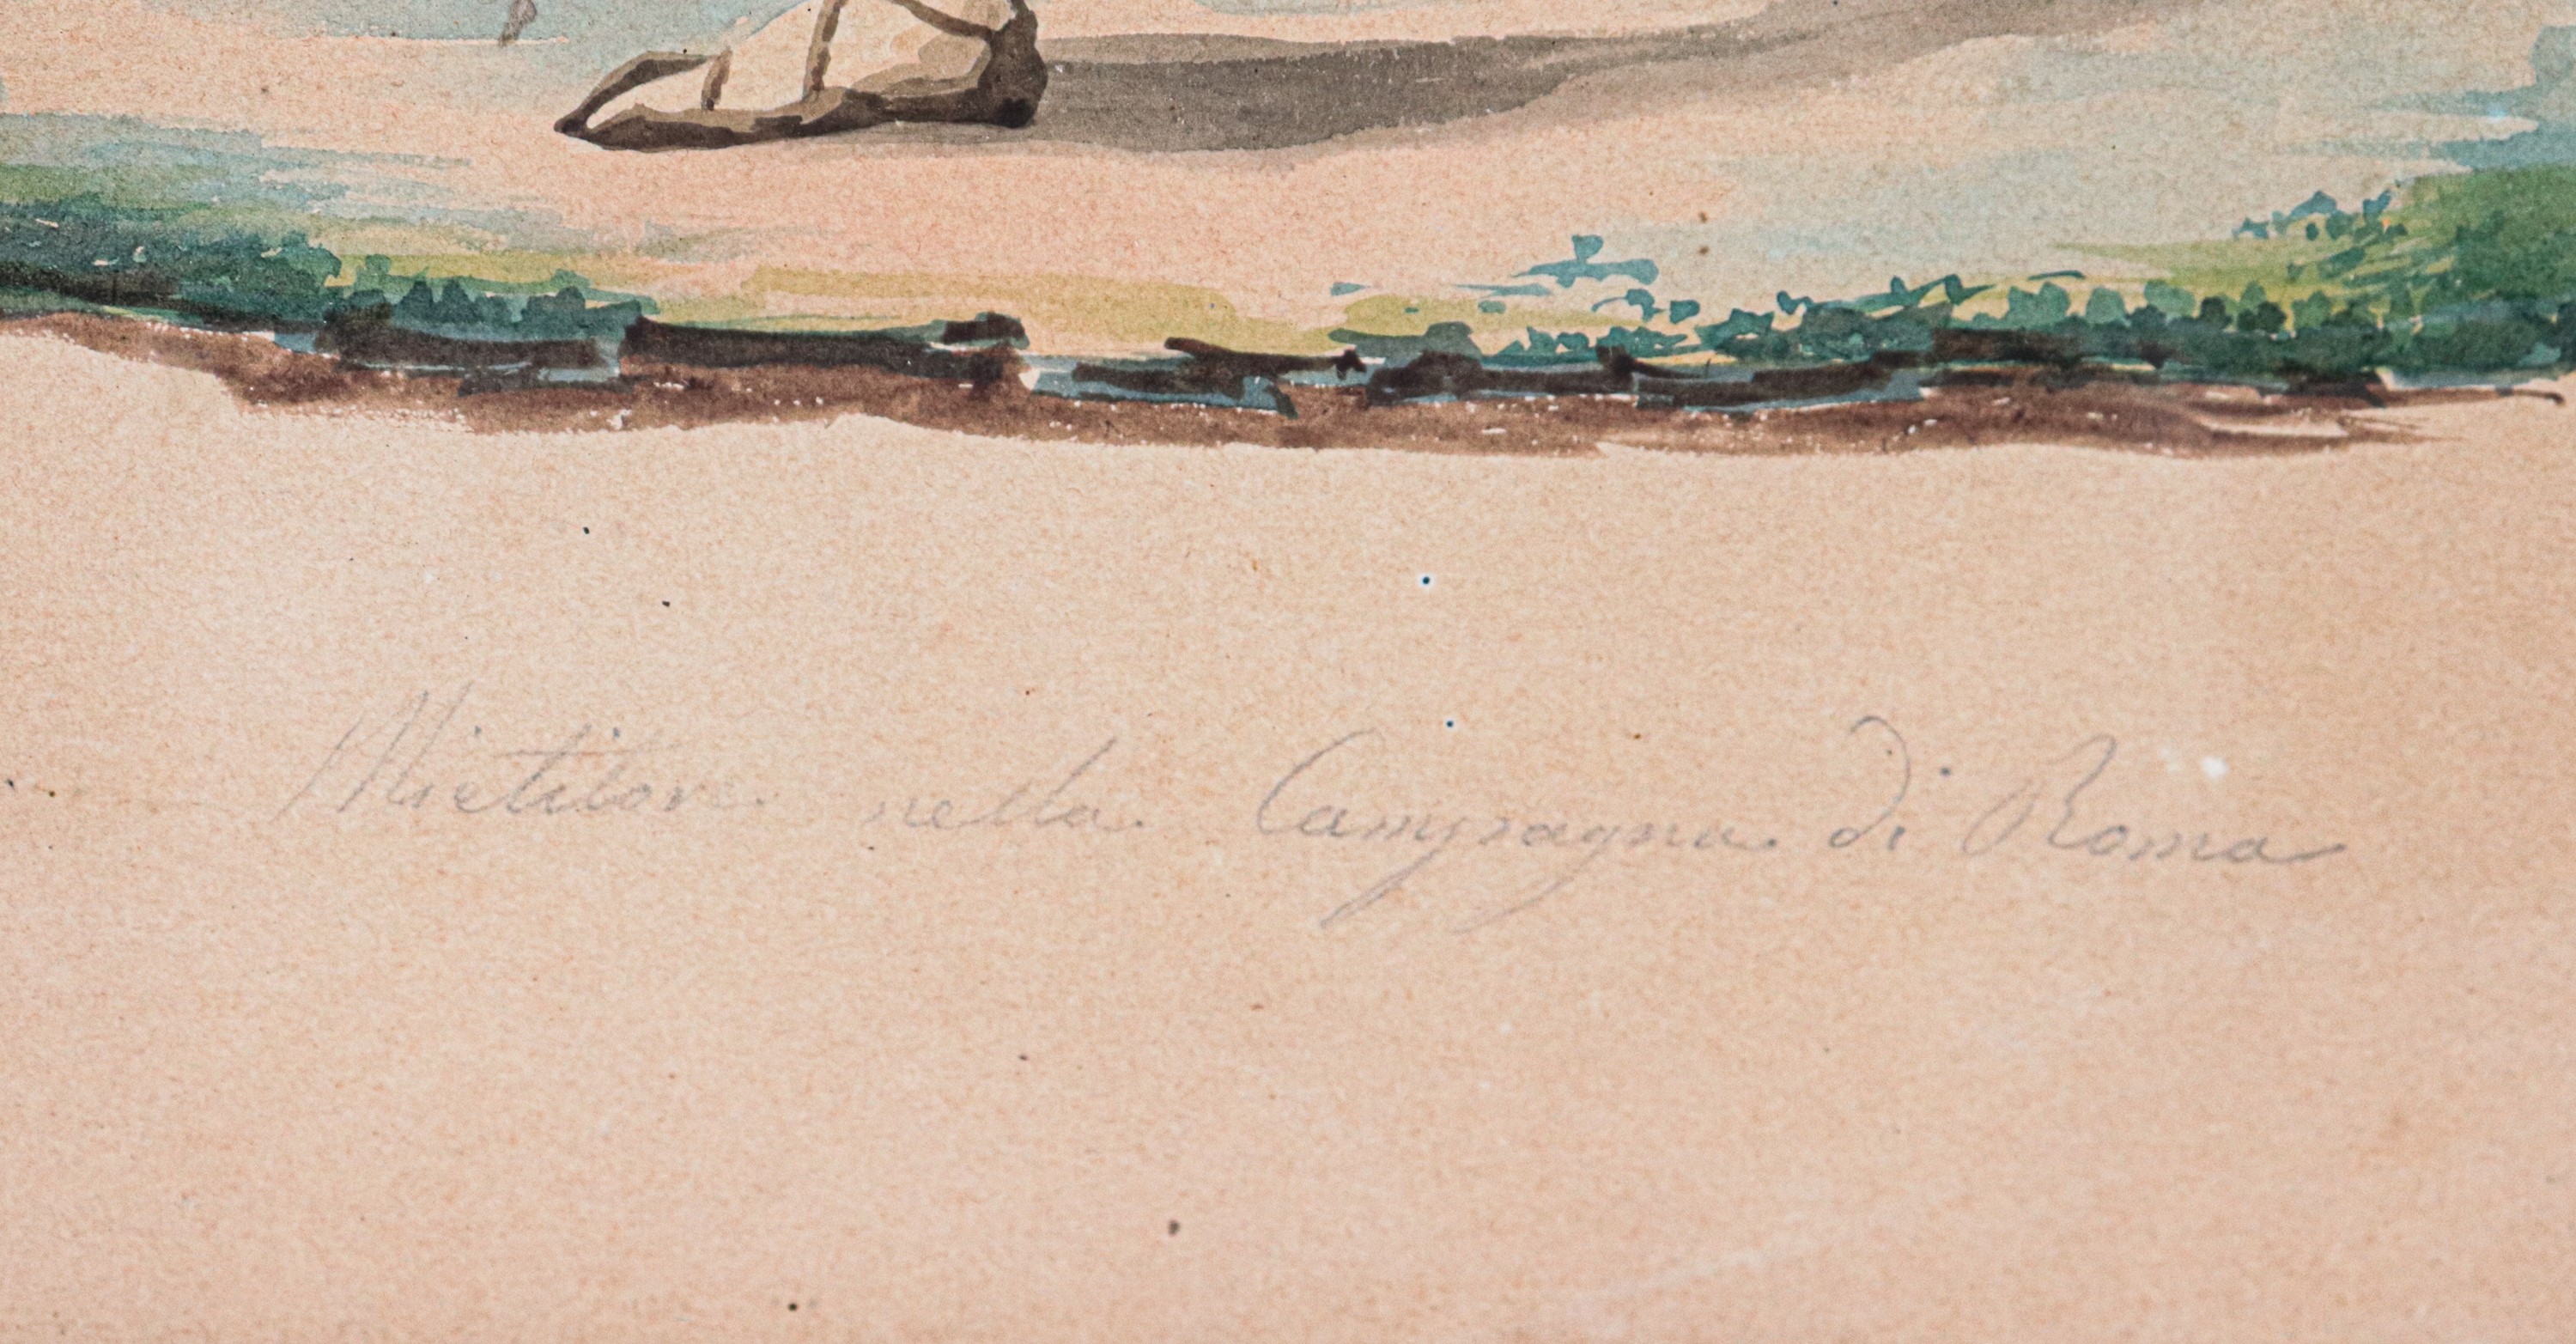 Mietitore nella Campagna di Roma